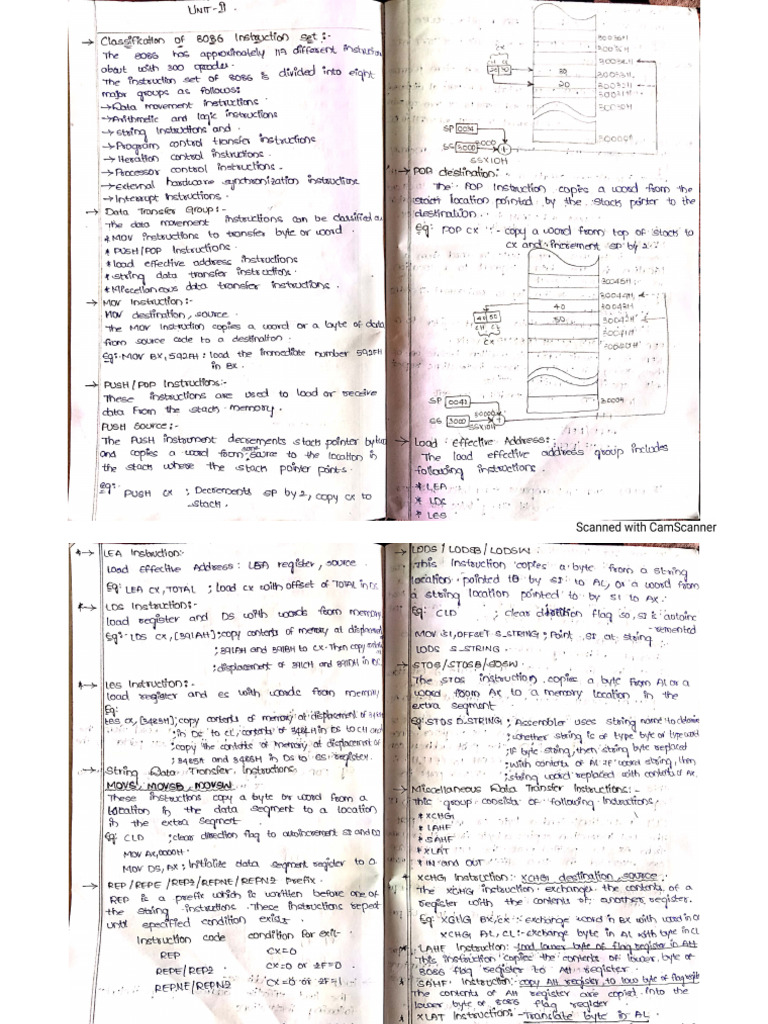 UNIT-II
→ Classification of 8086 Instruction set :-
The 8086 has approximately 117 different instructions
about with 300 opcodes.
The instruction set of 8086 is divided into eight
major groups as follows:
→ Data movement instructions
→ Arithmetic and logic instructions
→ String Instructions and
→ Program control transfer instructions
→ Iteration control instructions.
→ Processor control instructions.
→ External hardware synchronization instructions
→ Interrupt Instructions.
→ Data Transfer Group:-
The data movement instructions can be classified as
* MOV instructions to transfer byte or word.
* PUSH/POP Instructions.
* load effective address instructions
* string data transfer instructions.
* Miscellaneous data transfer instructions.
→ MOV Instruction:-
MOV destination, source.
The MOV Instruction copies a word or a byte of data
from source code to a destination.
Eg:- MOV BX, 592FH : load the immediate number 592FH
in BX.
→ PUSH / POP Instructions:-
These instructions are used to load or receive
data from the stack memory.
PUSH source:-
The PUSH instrument decrements stack pointer by two
and copies a word from some source to the location in
the stack where the stack pointer points.
Eg:- PUSH CX ; Decrements SP by 2, copy CX to
stack.
CX
30
20
SP 0034
SS 3000
3000
SS×10H
→ POP destination:-
The POP Instruction copies a word from the
stack location pointed by the stack pointer to the
destination.
Eg: POP CX :- copy a word from top of stack to
CX and increment SP by 2.
40
50
CH CL
CX
SP 0042
SS 3000
30000
SS×10H
→ Load Effective Address:
The load effective address group includes
following instructions.
* LEA
* LDS
* LES
Scanned with CamScanner
* → LEA Instruction:-
Load Effective Address : LEA register, source.
Eg: LEA CX, TOTAL ; load CX with offset of TOTAL in DS
* → LDS Instruction:-
load register and DS with words from memory
Eg:- LDS CX, [391AH] ; copy contents of memory at displacement
; 391AH and 391BH to CX. Then copy contents
; displacement of 391CH and 391DH in DS.
* → LES Instruction:-
load register and ES with words from memory
Eg:
LES CX, [3483H] ; copy contents of memory at displacement of 3483H
; in DS to CL, contents of 3484H in DS to CH and
; copy the contents of memory at displacement of
; 3485H and 3486H in DS to ES register.
→ String Data Transfer Instructions
MOVS, MOVSB, MOVSW.
These instructions copy a byte or word from a
location in the data segment to a location
in the extra segment.
Eg: CLD ; clear direction flag to autoincrement SI and DI
MOV AX, 0000H.
MOV DS, AX ; Initialize data segment register to 0.
→ REP / REPE / REPZ / REPNE / REPNZ Prefix.
REP is a prefix which is written before one of
the string instructions. These instructions repeat
until specified condition exist.
Instruction code condition for exit-
REP CX=0
REPE/REPZ CX=0 or ZF=0
REPNE/REPNZ CX=0 or ZF=1
→ LODS / LODSB / LODSW.
This instruction copies a byte from a string
location pointed to by SI to AL, or a word from
a string location pointed to by SI to AX.
Eg: CLD ; clear direction flag so, SI is autoinc
remented
MOV SI, OFFSET S_STRING ; Point SI at string
LODS S_STRING.
→ STOS/STOSB/STOSW.
The STOS instruction copies a byte from AL or a
word from AX to a memory location in the
extra segment
Eg: STOS D.STRING ; Assembler uses string name to determine
; whether string is of type byte or type word
; If byte string, then string byte replaced
; with contents of AL. If word string, then
; string word replaced with contents of AX.
→ Miscellaneous Data Transfer Instructions:-
This group consists of following instructions.
* XCHG
* LAHF
* SAHF
* XLAT
* IN and OUT
* XCHG Instruction: XCHG destination, source.
The XCHG instruction exchanges the contents of a
register with the contents of another register.
Eg: XCHG BX, CX :- exchange word in BX with word in CX
XCHG AL, CL :- exchange byte in AL with byte in CL
* LAHF Instruction: load lower byte of flag register in AH
This instruction copies the contents of lower byte of
8086 flag register to AH register.
* SAHF Instruction: copy AH register to low byte of flag register
The contents of AH register are copied into the
lower byte of 8086 flag register
* XLAT Instructions - Translate byte in AL.